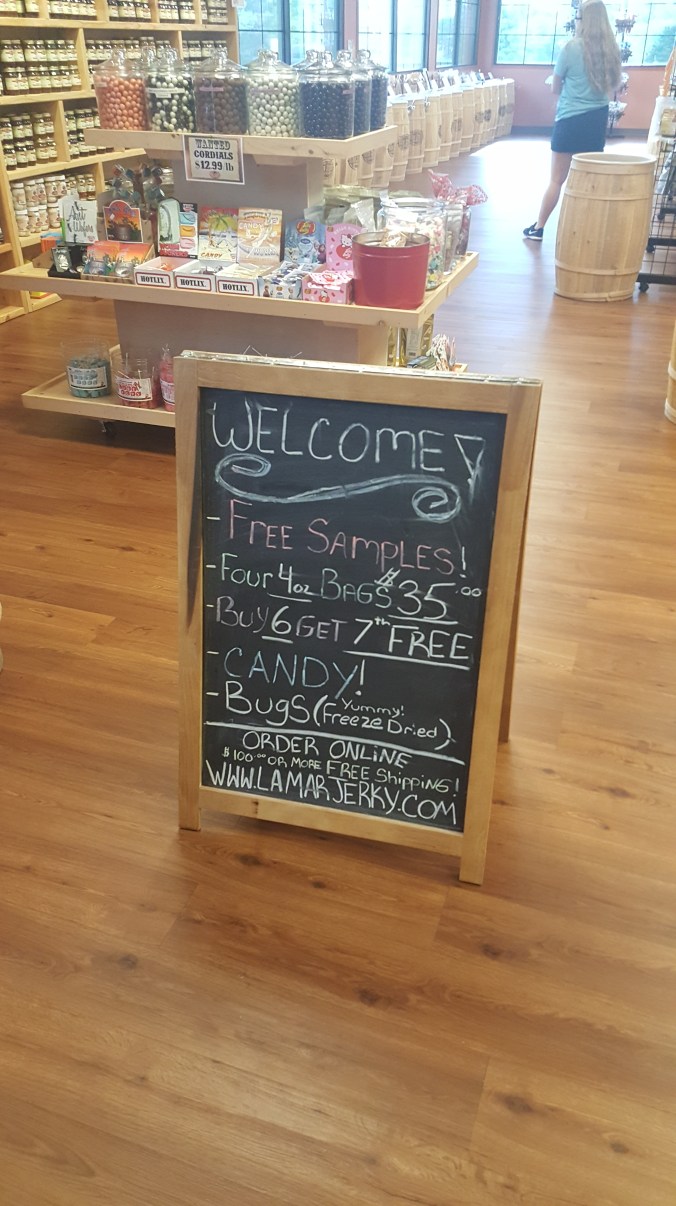 WANTED
CORDIALS
$12.99 lb
HOTLIX
HOTLIX
HOTLIX
WELCOME!
- FREE SAMPLES!
- FOUR 4oz BAGS $35.00
- BUY 6 GET 7th FREE
- CANDY!
- BUGS (Yummy! Freeze Dried)
ORDER ONLINE
$100.00 OR MORE FREE Shipping!
WWW.LAMARJERKY.COM